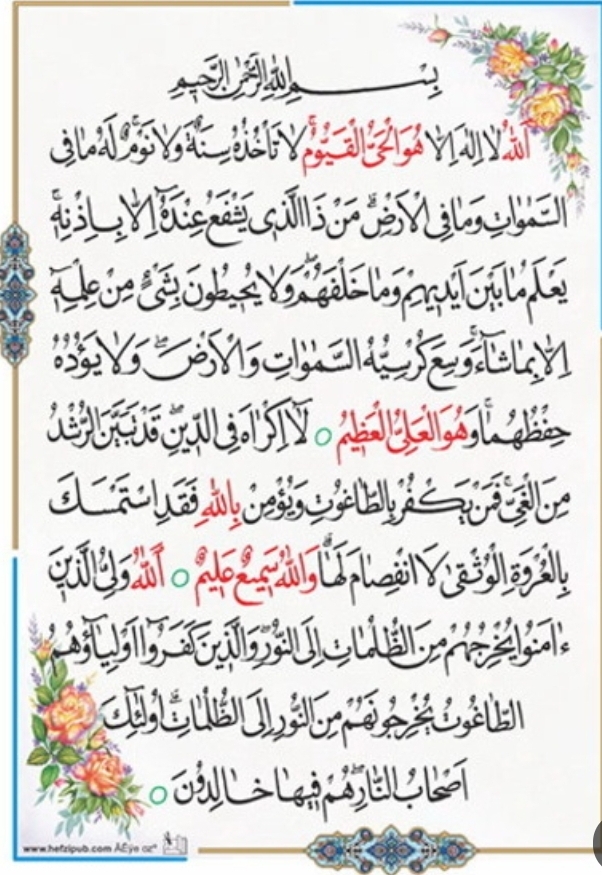 بِسْمِ اللّٰهِ الرَّحْمٰنِ الرَّحِيمِ
اَللّٰهُ لَا اِلٰهَ اِلَّا هُوَ الْحَىُّ الْقَيُّومُ ۚ لَا تَأْخُذُهُ سِنَةٌ وَلَا نَوْمٌ ۚ لَهُ مَا فِى
السَّمٰوَاتِ وَمَا فِى الْاَرْضِ ۗ مَنْ ذَا الَّذِى يَشْفَعُ عِنْدَهُٓ اِلَّا بِاِذْنِهٖ ۚ
يَعْلَمُ مَا بَيْنَ اَيْدِيهِمْ وَمَا خَلْفَهُمْ ۖ وَلَا يُحِيطُونَ بِشَىْءٍ مِنْ عِلْمِهٖٓ
اِلَّا بِمَا شَٓاءَ ۚ وَسِعَ كُرْسِيُّهُ السَّمٰوَاتِ وَالْاَرْضَ ۖ وَلَا يَؤُدُهُ
حِفْظُهُمَا ۚ وَهُوَ الْعَلِىُّ الْعَظِيمُ ○ لَٓا اِكْرَاهَ فِى الدِّينِ ۖ قَدْ تَبَيَّنَ الرُّشْدُ
مِنَ الْغَىِّ ۚ فَمَنْ يَكْفُرْ بِالطَّاغُوتِ وَيُؤْمِنْ بِاللّٰهِ فَقَدِ اسْتَمْسَكَ
بِالْعُرْوَةِ الْوُثْقٰى لَا انْفِصَامَ لَهَا ۗ وَاللّٰهُ سَمِيعٌ عَلِيمٌ ○ اَللّٰهُ وَلِىُّ الَّذِينَ
ءَامَنُوا يُخْرِجُهُمْ مِنَ الظُّلُمَاتِ اِلَى النُّورِ ۖ وَالَّذِينَ كَفَرُٓوا اَوْلِيَٓاؤُهُمُ
الطَّاغُوتُ يُخْرِجُونَهُمْ مِنَ النُّورِ اِلَى الظُّلُمَاتِ ۗ اُولٰٓئِكَ
اَصْحَابُ النَّارِ ۖ هُمْ فِيهَا خَالِدُونَ ○
www.hefzipub.com